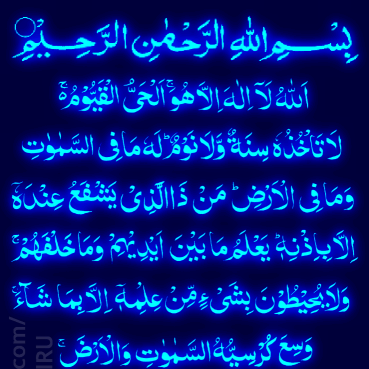 بِسْمِ اللهِ الرَّحْمٰنِ الرَّحِيْمِ
اَللهُ لَآ اِلٰهَ اِلَّا هُوَ ۚ اَلْحَيُّ الْقَيُّوْمُ ۚ
لَا تَاْخُذُهٗ سِنَةٌ وَّلَا نَوْمٌ ؕ لَهٗ مَا فِى السَّمٰوٰتِ
وَمَا فِى الْاَرْضِ ؕ مَنْ ذَا الَّذِىْ يَشْفَعُ عِنْدَهٗٓ
اِلَّا بِاِذْنِهٖ ؕ يَعْلَمُ مَا بَيْنَ اَيْدِيْهِمْ وَمَا خَلْفَهُمْ ۚ
وَلَا يُحِيْطُوْنَ بِشَىْءٍ مِّنْ عِلْمِهٖٓ اِلَّا بِمَا شَآءَ ۚ
وَسِعَ كُرْسِيُّهُ السَّمٰوٰتِ وَالْاَرْضَ ۚ
.com/
IRU